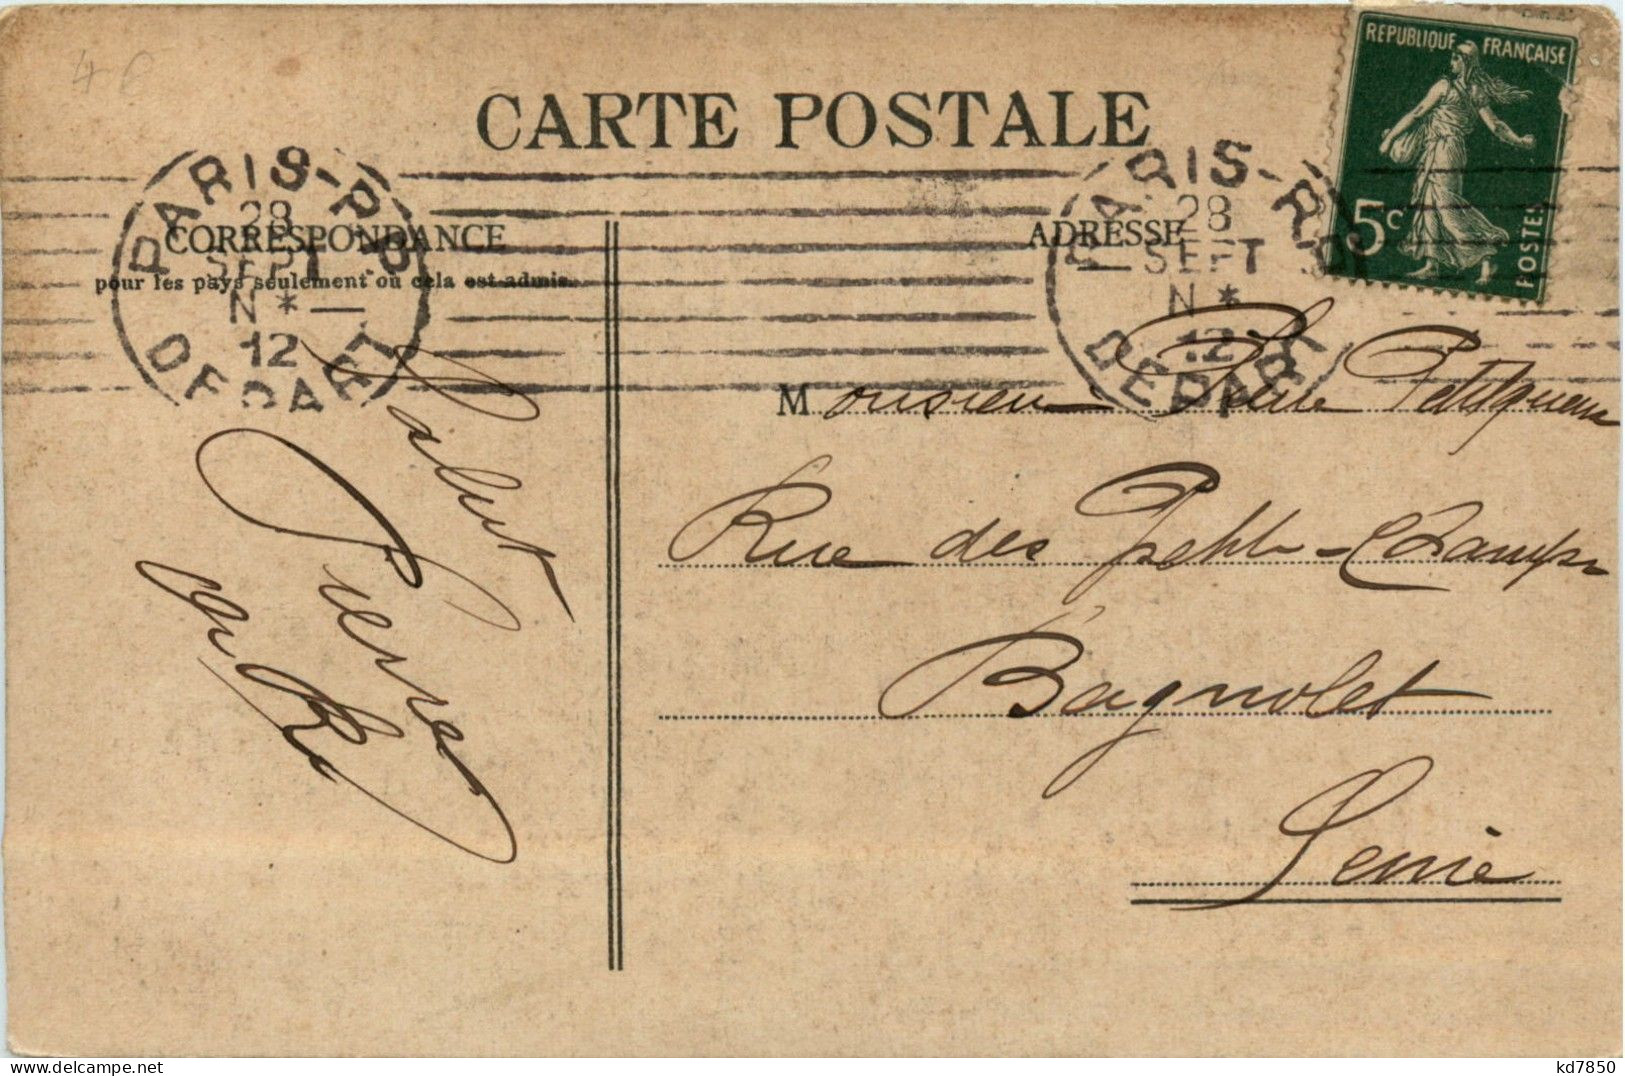 4 €
CARTE POSTALE
REPUBLIQUE FRANÇAISE
5c
POSTES
PARIS-R.P.
28
SEPT
N* —
12
DEPART
PARIS-R.P.
— 28
SEPT
N*
12
DEPART
CORRESPONDANCE
pour les pays seulement où cela est admis.
ADRESSE
Monsieur
Rue des Petits-Champs
Bagnolet
Seine
Salut
Pierre
kd7850